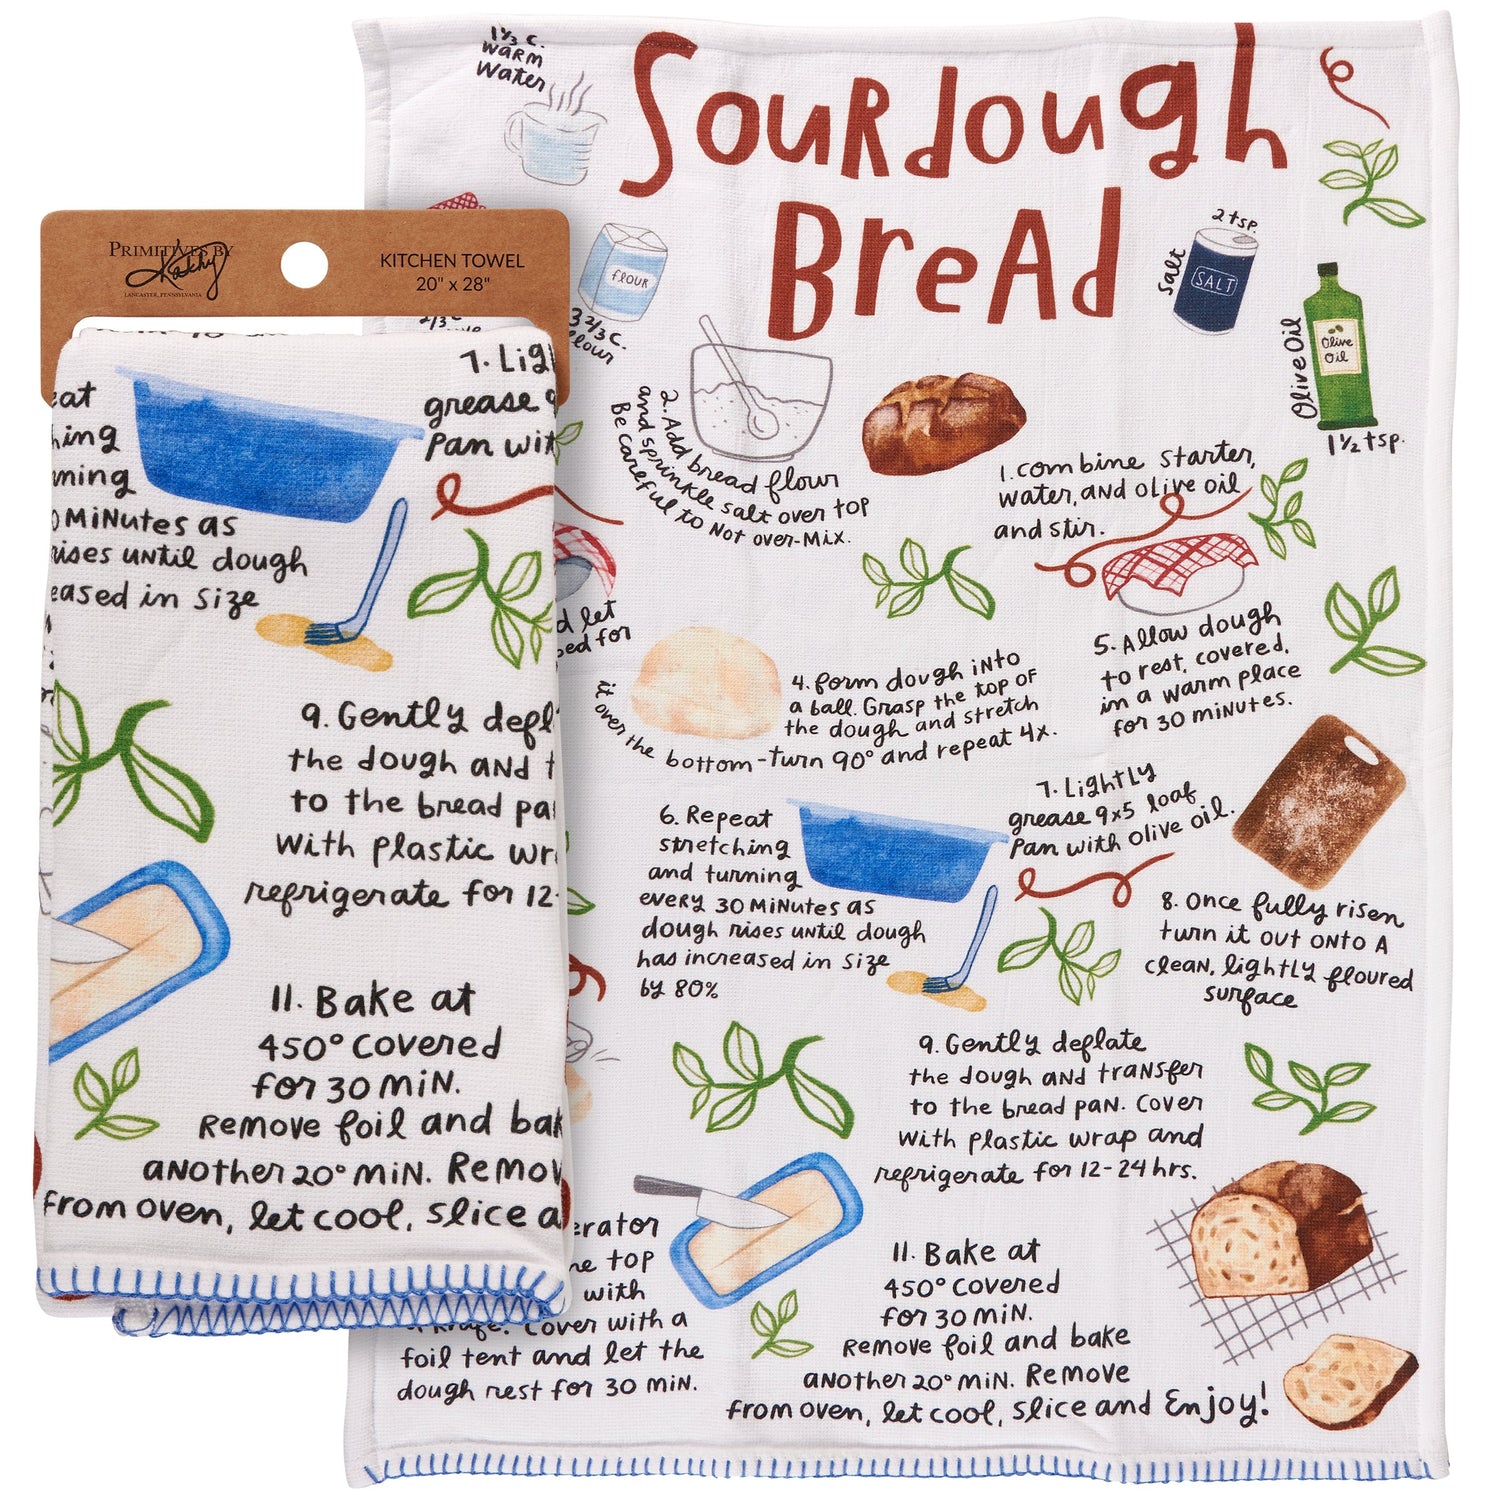 Sourdough
Bread
1⅓ c.
warm
water
flour
3 2/3 c.
flour
2 tsp.
salt
SALT
Olive Oil
Olive
Oil
1½ tsp.
1. combine starter,
water, and olive oil
and stir.
2. Add bread flour
and sprinkle salt over top
Be careful to not over-mix.
let
for
4. form dough into
a ball. Grasp the top of
the dough and stretch
it over the bottom-turn 90° and repeat 4x.
5. Allow dough
to rest, covered,
in a warm place
for 30 minutes.
6. Repeat
stretching
and turning
every 30 minutes as
dough rises until dough
has increased in size
by 80%
7. Lightly
grease 9x5 loaf
pan with olive oil.
8. Once fully risen
turn it out onto a
clean, lightly floured
surface
9. Gently deflate
the dough and transfer
to the bread pan. Cover
with plastic wrap and
refrigerate for 12-24 hrs.
top
with
knife. Cover with a
foil tent and let the
dough rest for 30 min.
11. Bake at
450° covered
for 30 min.
Remove foil and bake
another 20° min. Remove
from oven, let cool, slice and Enjoy!
PRIMITIVES BY
Kathy
LANCASTER, PENNSYLVANIA
KITCHEN TOWEL
20" x 28"
7. Ligh
grease 9
pan wit
eat
hing
rning
0 minutes as
rises until dough
eased in size
9. Gently defl
the dough and t
to the bread pa
with plastic wr
refrigerate for 12-
11. Bake at
450° covered
for 30 min.
Remove foil and bak
another 20° min. Remov
from oven, let cool, slice a